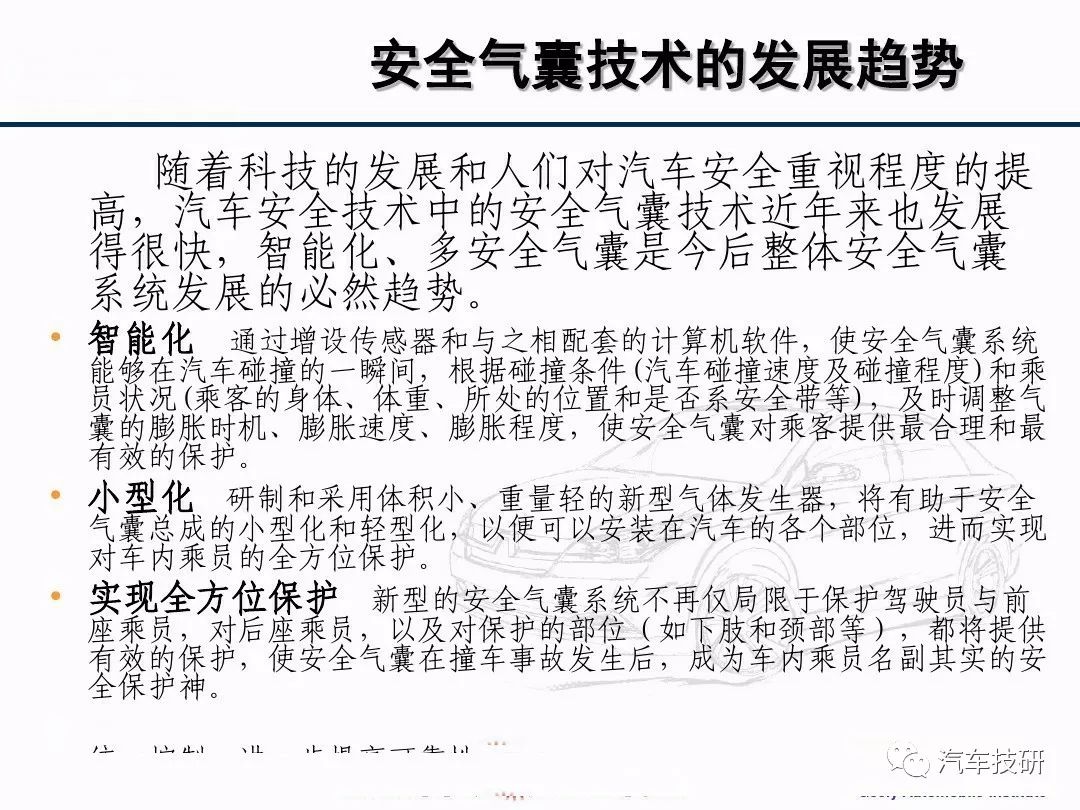 安全气囊技术的发展趋势
随着科技的发展和人们对汽车安全重视程度的提
高，汽车安全技术中的安全气囊技术近年来也发展
得很快，智能化、多安全气囊是今后整体安全气囊
系统发展的必然趋势。
• 智能化 通过增设传感器和与之相配套的计算机软件，使安全气囊系统
能够在汽车碰撞的一瞬间，根据碰撞条件(汽车碰撞速度及碰撞程度)和乘
员状况(乘客的身体、体重、所处的位置和是否系安全带等)，及时调整气
囊的膨胀时机、膨胀速度、膨胀程度，使安全气囊对乘客提供最合理和最
有效的保护。
• 小型化 研制和采用体积小、重量轻的新型气体发生器，将有助于安全
气囊总成的小型化和轻型化，以便可以安装在汽车的各个部位，进而实现
对车内乘员的全方位保护。
• 实现全方位保护 新型的安全气囊系统不再仅局限于保护驾驶员与前
座乘员，对后座乘员，以及对保护的部位（如下肢和颈部等），都将提供
有效的保护，使安全气囊在撞车事故发生后，成为车内乘员名副其实的安
全保护神。
汽车技研
Automobile Institute